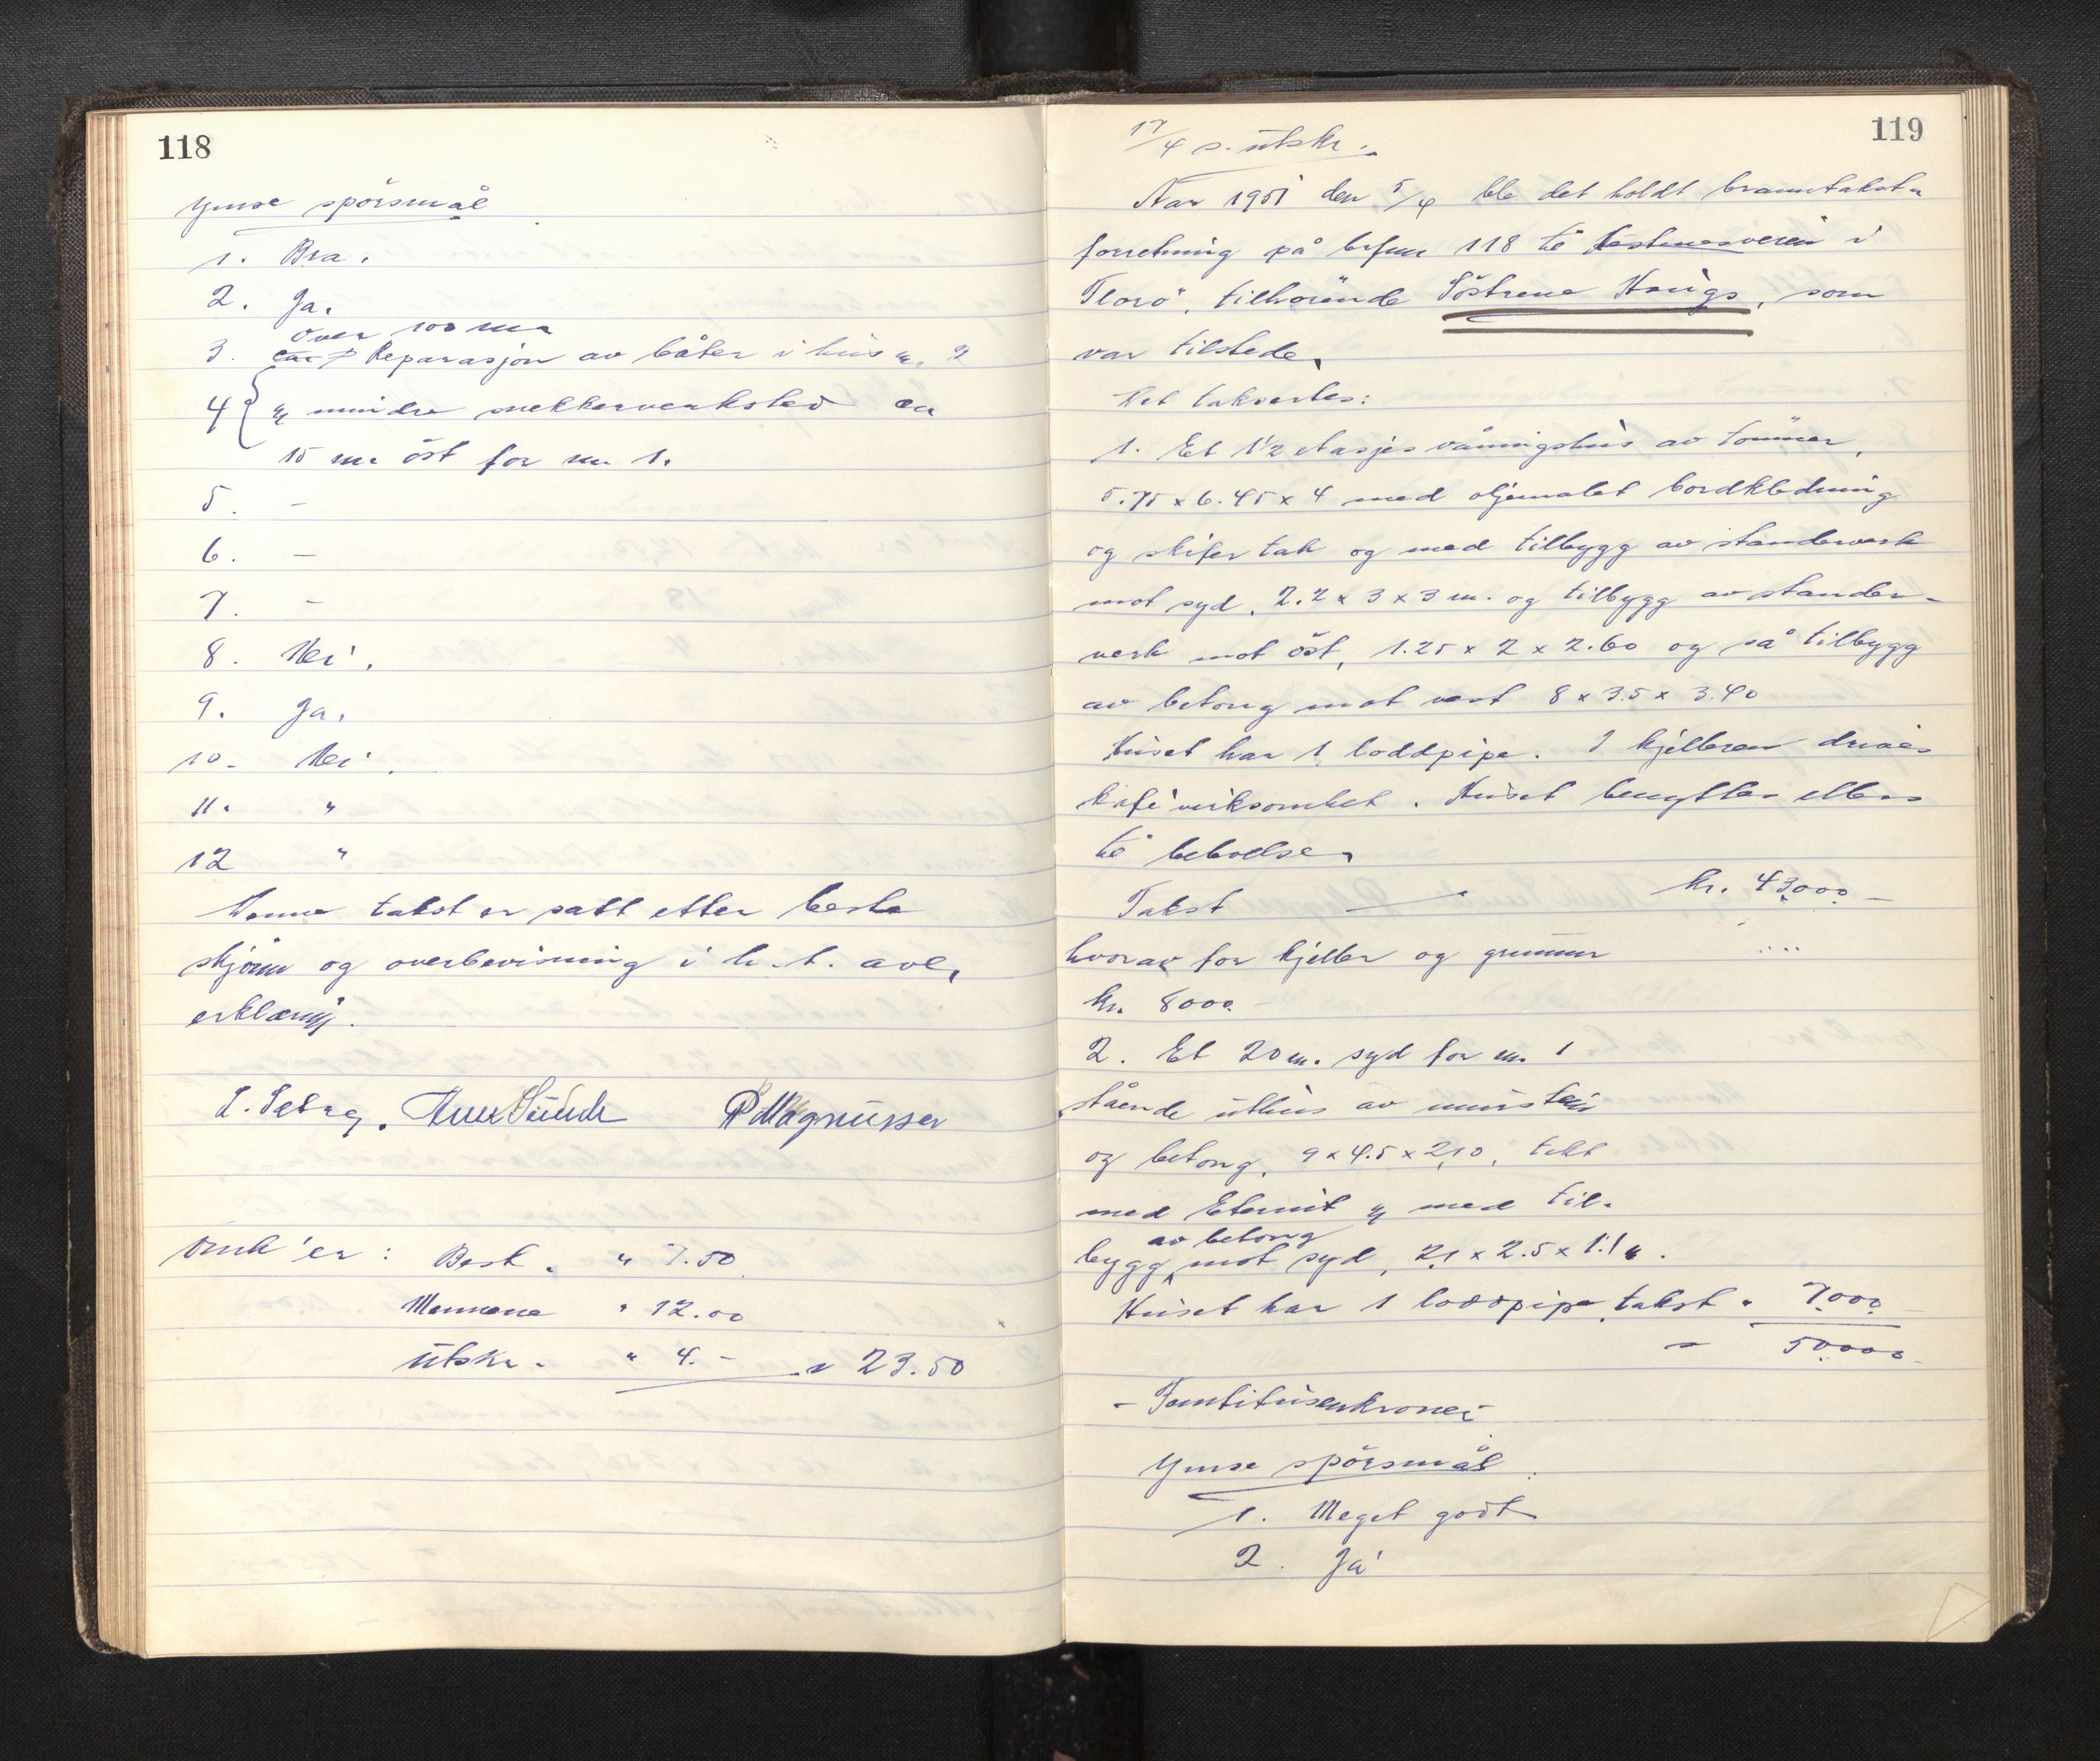 118
Ymse spörsmål
1. Bra.
2. Ja.
over 100 m
3. Reparasjon av båter i hus nr. 2
4 og mindre snekkerverksted ca
15 m. öst for nr 1.
5. -
6. -
7. -
8. Nei.
9. Ja.
10. Nei.
11. "
12 "
Denne takst er satt etter beste
skjönn og overbevisning i h.t. avl.
erklæring.
P Magnussen
Omk'er: Best. " 7.50
Mennene " 12.00
Utskr. " 4.- " 23.50
119
17/4 s. utskr.
Aar 1951 den 5/4 ble det holdt branntakst-
forretning på brfnr 118 i
Florö, tilhörende Söstrene Haugs, som
var tilstede.
Det taksertes:
1. Et 1½ etasjes våningshus av tömmer,
5.75 x 6.45 x 4 med oljemalet bordkledning
og skifer tak og med tilbygg av standerverk
mot syd, 2.2 x 3 x 3 m. og tilbygg av stander-
verk mot öst, 1.25 x 2 x 2.60 og så tilbygg
av betong mot vest 8 x 3.5 x 3.40
Huset har 1 loddpipe. I kjelleren drives
kafévirksomhet. Huset benyttes ellers
til beboelse.
Takst - " kr. 43000 -
hvorav for kjeller og grunnmur
kr. 8000.-
2. Et 20 m. syd for nr. 1
stående uthus av murstein
og betong, 9 x 4.5 x 2,10, tekt
med Eternit og med til-
av betong
bygg mot syd, 2,1 x 2.5 x 1.1 m.
Huset har 1 loddpipe, takst " 7000 -
" 50000 -
- Femtitusenkroner -
Ymse spörsmål:
1. Meget godt
2. Ja